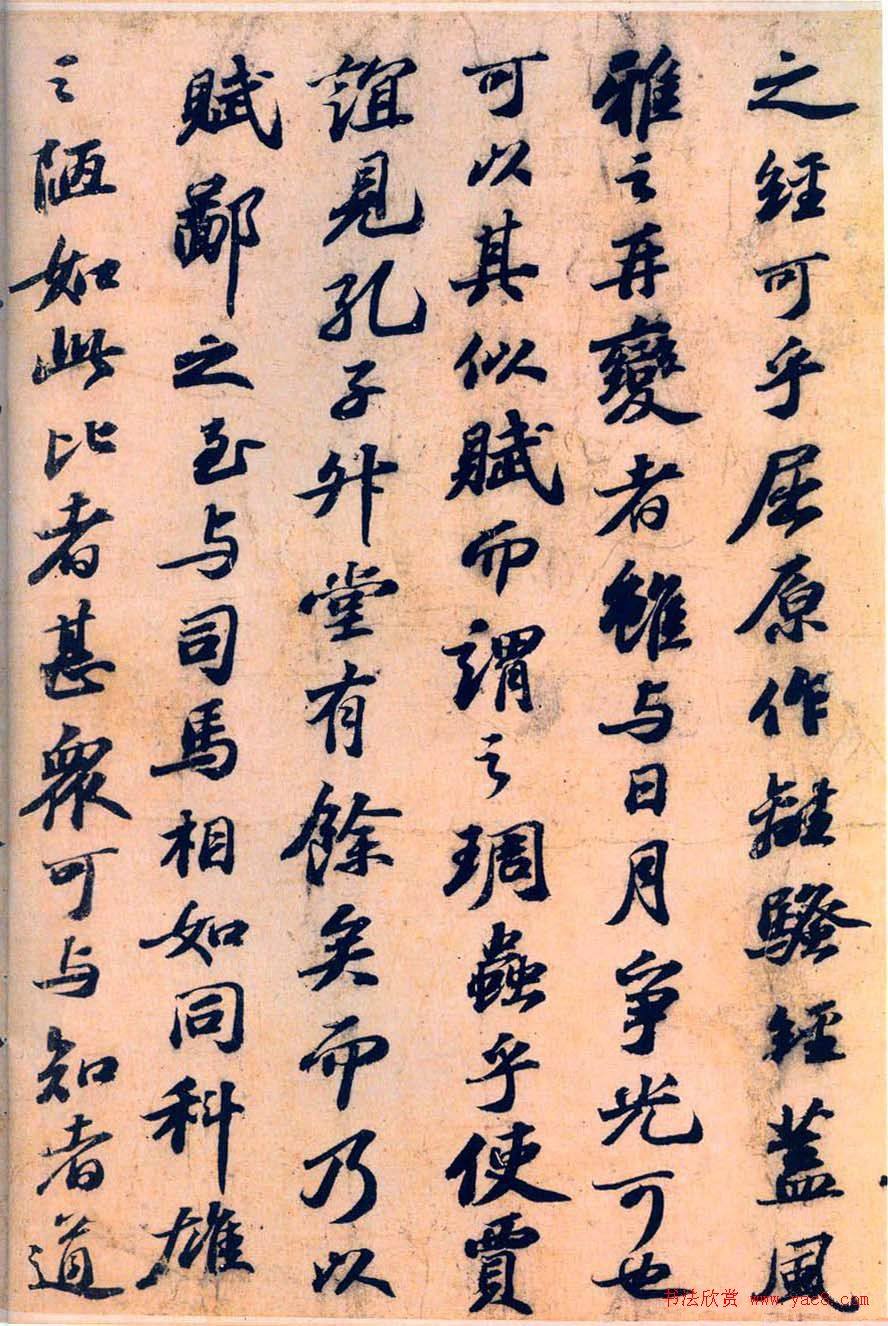 之經可乎屈原作離騷經蓋風
雅之再變者雖与日月爭光可也
可以其似賦而謂之琱蟲乎使賈
誼見孔子升堂有餘矣而乃以
賦鄙之至与司馬相如同科雄
之陋如此比者甚衆可与知者道
书法欣赏 www.yac8.com